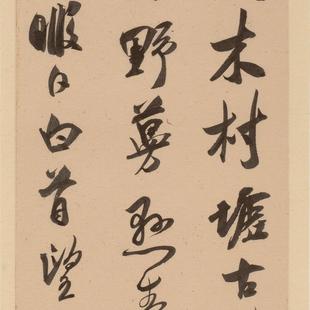 木村墟古
野蔓懸素
暇日白首望